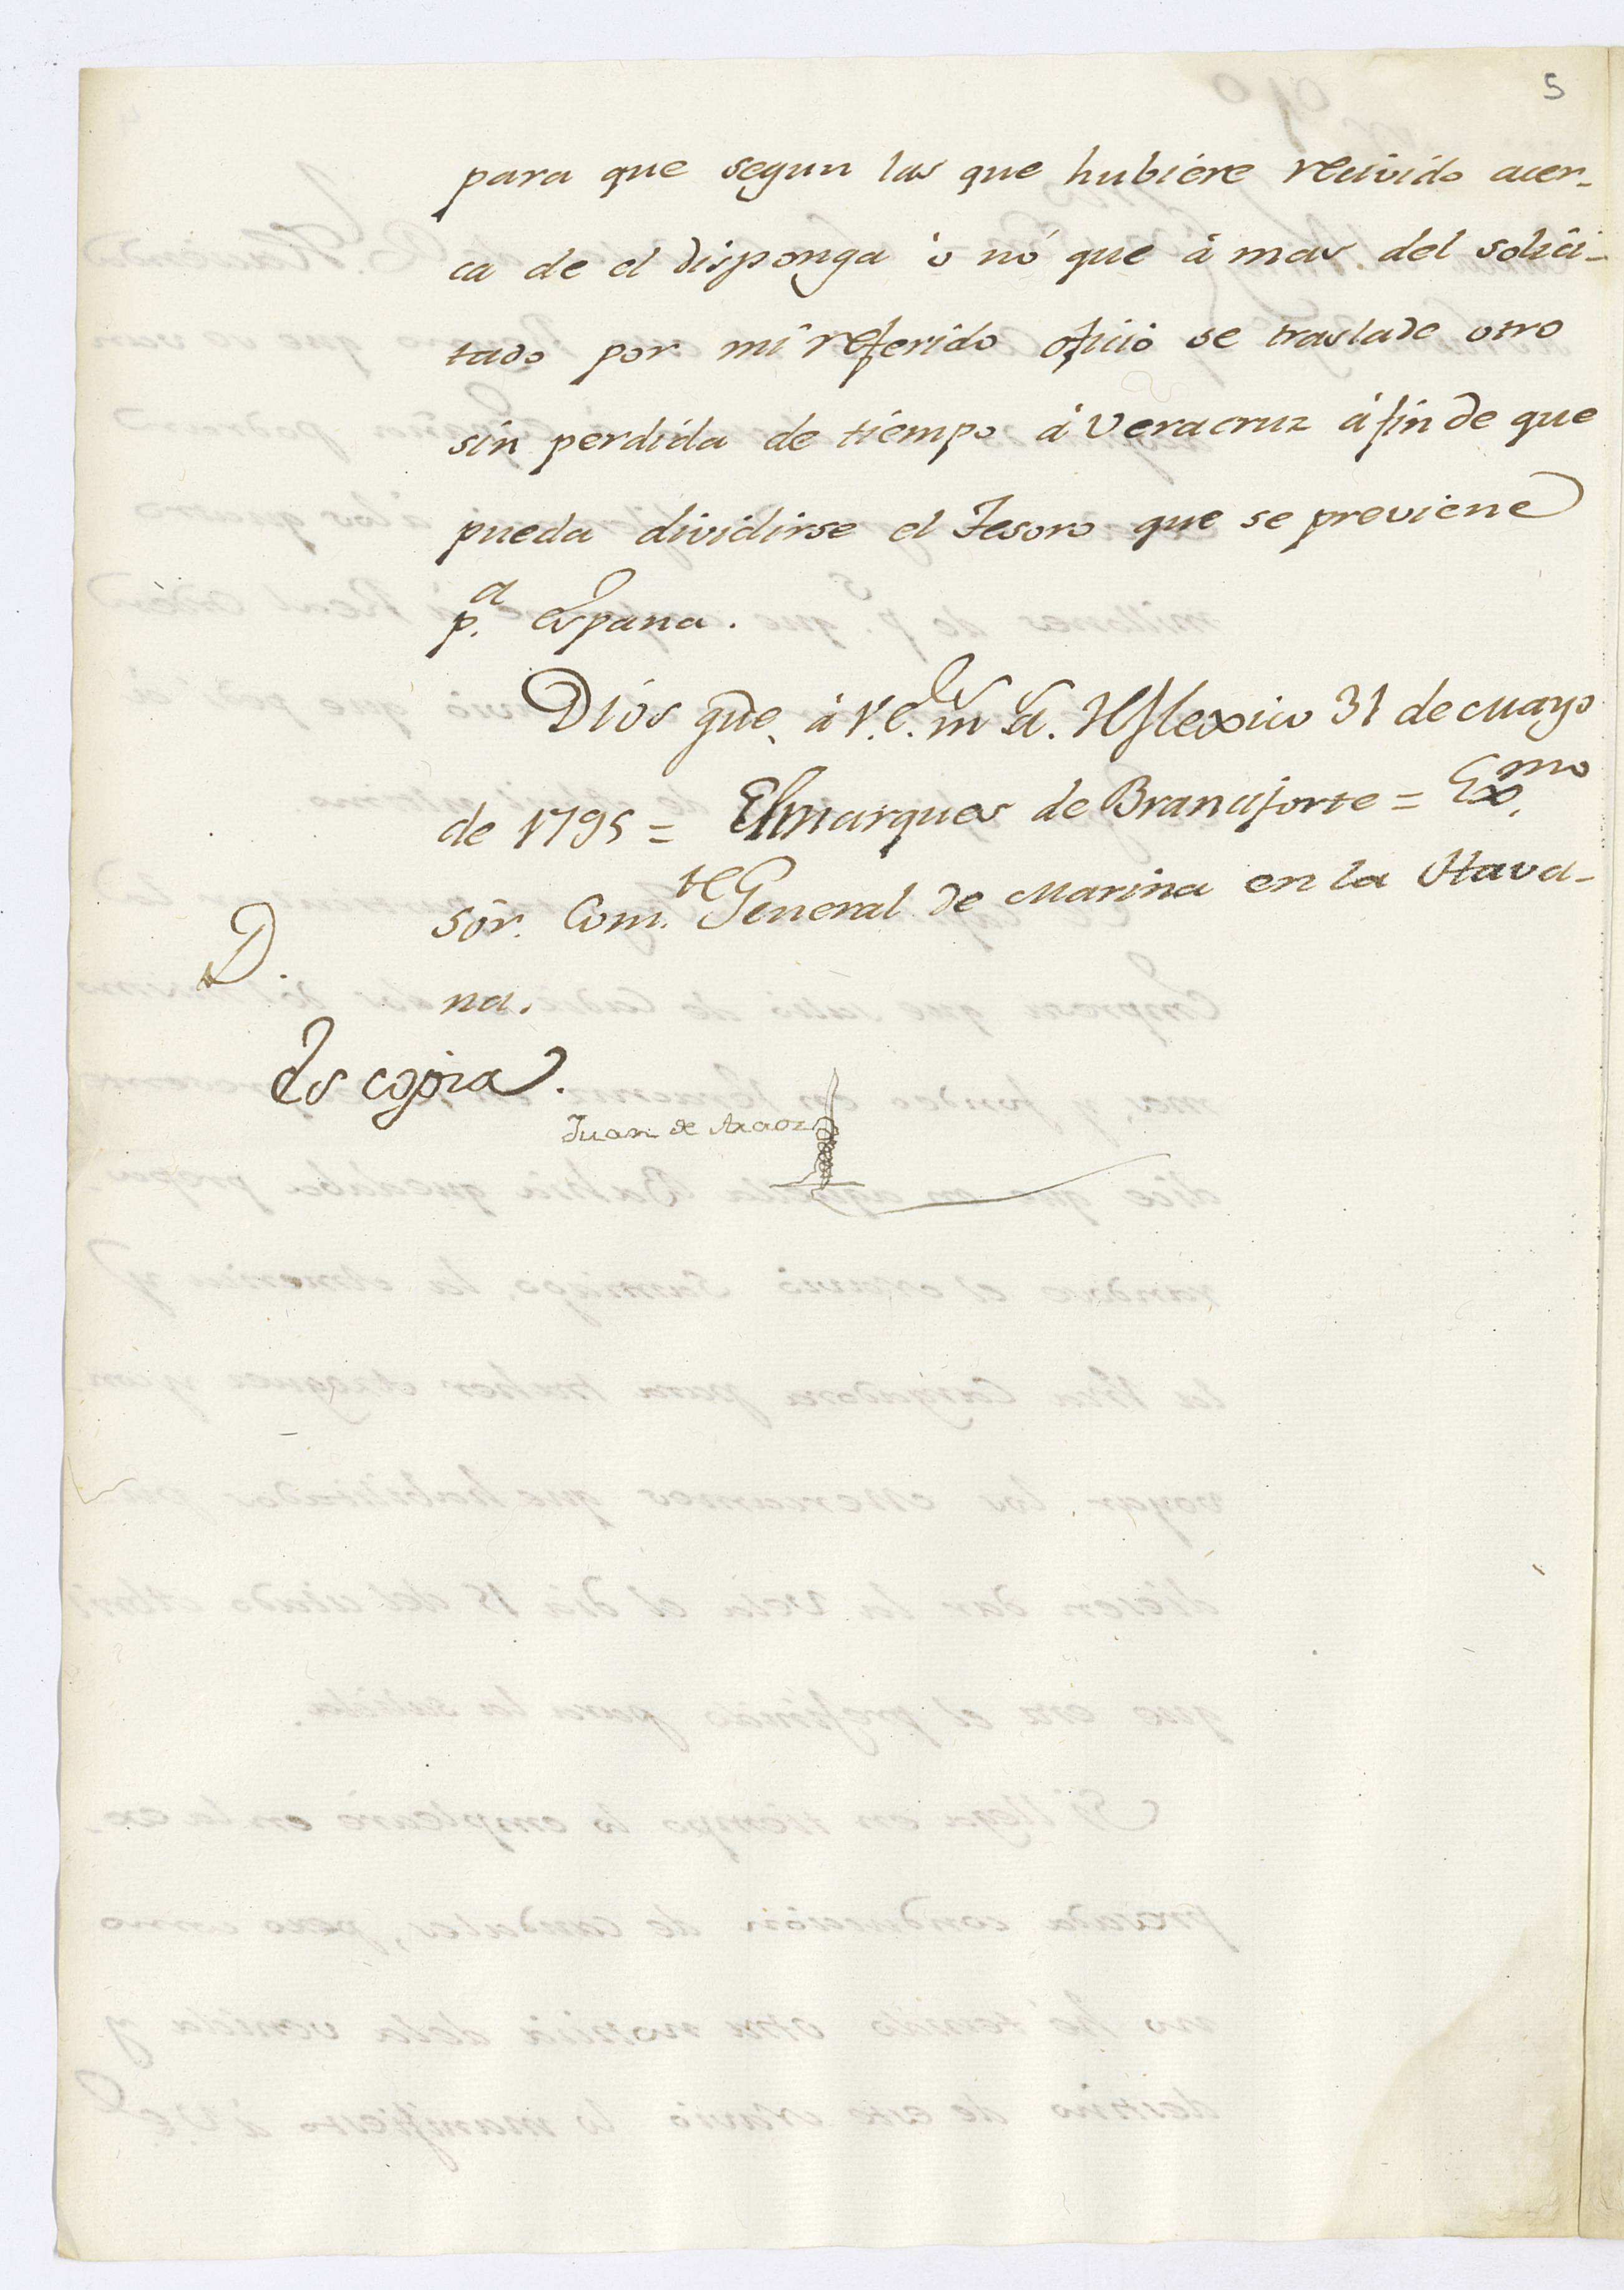 5
para que segun las que hubiere recivido acer-
ca de el disponga ò nó que à mas del solici-
tado por mi referido oficio se traslade otro
sin perdida de tiempo à Veracruz à fin de que
pueda dividirse el Tesoro que se previene
p.a España.
Dios gũe. à V.E. m.s a.s Mexico 31 de Mayo
de 1795 = El Marques de Branciforte = Exmo.
Sõr. Com.te General de Marina en la Hava-
na.
D.
Es copia.
Juan de Araoz